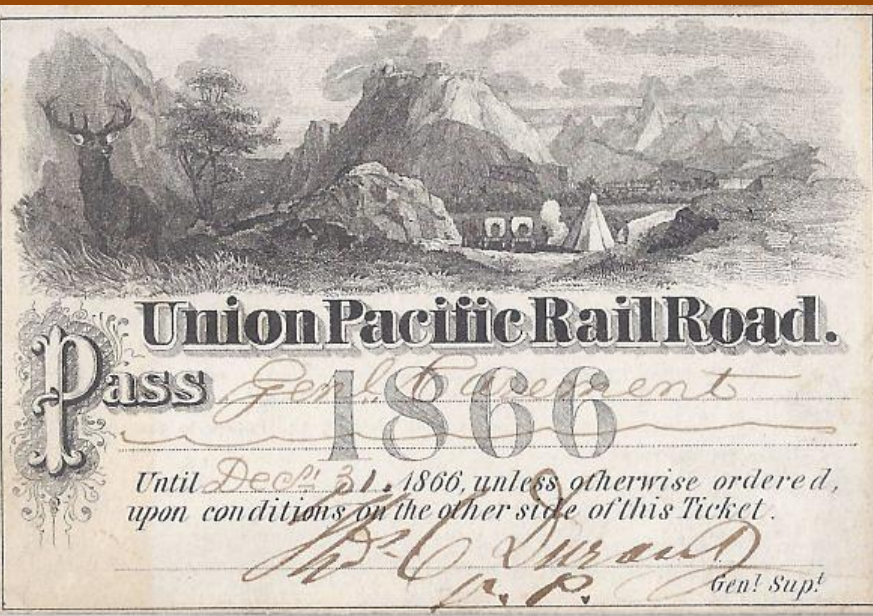 Union Pacific Rail Road.
Pass Genl. Casement
1866
Until Decr. 31. 1866, unless otherwise ordered,
upon conditions on the other side of this Ticket.
Thos C Durant
V. P. Genl Supt